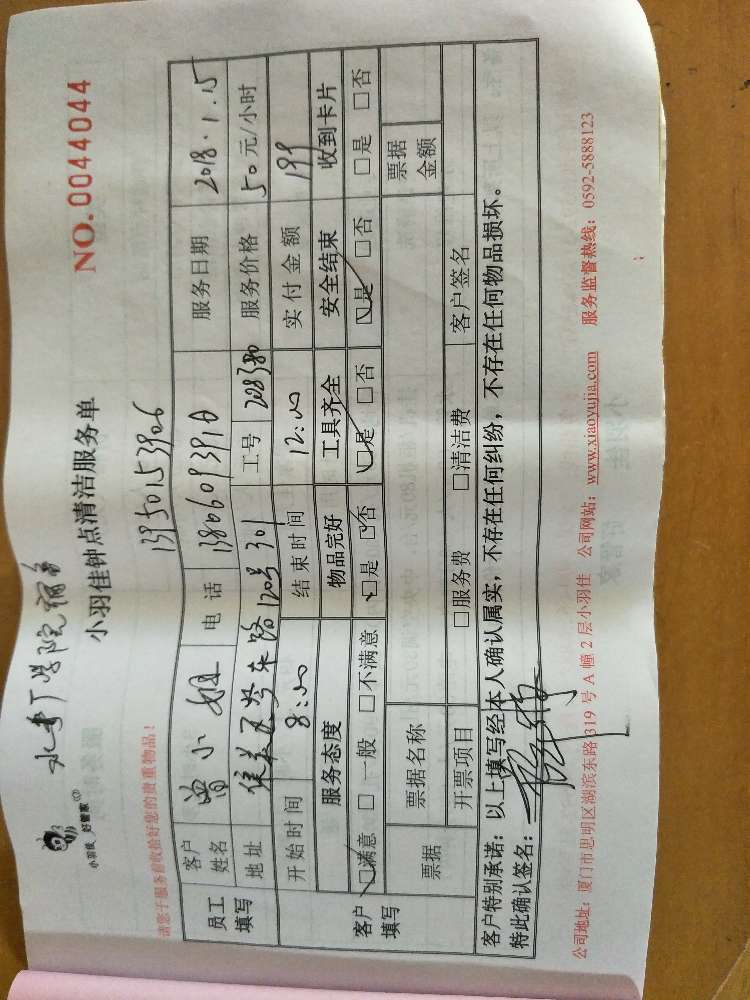 水产学院宿舍
小羽佳 好管家
小羽佳钟点清洁服务单
NO.0044044
13950153906
请您于服务前收拾好您的贵重物品!
员工填写 客户姓名 曾小姐 电话 13806093910 服务日期 2018.1.15
地址 集美区 东路120号301 工号 208380 服务价格 50元/小时
开始时间 8:00 结束时间 12:00 实付金额 199
客户填写 服务态度 物品完好 工具齐全 安全结束 收到卡片
☑满意 □一般 □不满意 ☑是 □否 ☑是 □否 ☑是 □否 □是 □否
票据 票据名称 票据金额
开票项目 □服务费 □清洁费 客户签名
客户特别承诺:以上填写经本人确认属实,不存在任何纠纷,不存在任何物品损坏。
特此确认签名:
公司地址:厦门市思明区湖滨东路319号A幢2层小羽佳 公司网站:www.xiaoyujia.com 服务监督热线:0592-5888123